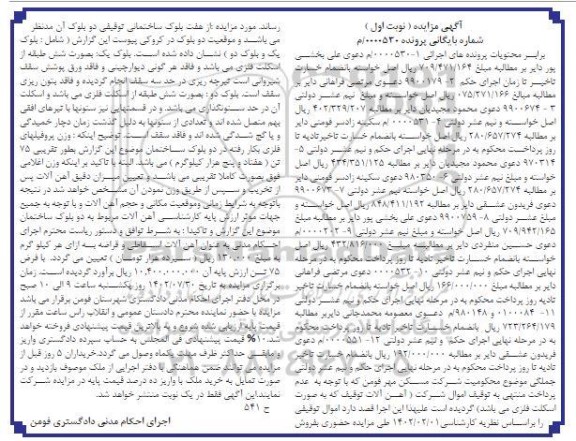 آگهی مزایده ( نوبت اول )
شماره بایگانی پرونده ۰۰۰۰۵۳۰/م
برابر محتویات پرونده های اجرائی ۱-۰۰۰۰۵۳۰/م دعوی علی بخشی
پور دایر بر مطالبه مبلغ ۷۰۹/۴۷۱/۱۶۴ ریال اصل خواسته بانضمام خسارت
تاخیر تا زمان اجرای حکم ۲- ۹۹۰۰۱۷۹ دعوی مرتضی فراهانی دایر بر
مطالبه مبالغ ۰۷۵/۲۷۱/۱۶۶ ریال اصل خواسته و مبلغ نیم عشر دولتی
۳ - ۹۹۰۰۶۷۴ دعوی محمود مجیدیان دایر بر مطالبه ۴۰۲/۳۲۹/۲۰۷ ریال
اصل خواسته و نیم عشر دولتی ۴- ۰۰۰۰۵۳۱/م سکینه زادسر فومنی دایر
بر مطالبه ۲۸۰/۶۵۷/۲۷۴ ریال اصل خواسته بانضمام خسارت تاخیر تادیه تا
روز پرداخت محکوم به در مرحله نهایی اجرای حکم و نیم عشر دولتی ۵-
۹۷۰۳۱۴ دعوی محمود مجیدیان دایر بر مطالبه ۴۳۴/۳۵۱/۱۲۵ ریال اصل
خواسته و مبلغ نیم عشر دولتی ۶- ۹۸۰۳۵۰ دعوی سکینه زادسر فومنی دایر
بر مطالبه ۲۸۰/۶۵۷/۲۷۴ ریال اصل خواسته نیم عشر دولتی ۷- ۹۹۰۰۶۷۳
دعوی فریدون عشقی دایر بر مطالبه ۸۴۸/۴۱۱/۱۹۲ ریال اصل خواسته و
مبلغ عشر دولتی ۸- ۹۹۰۰۷۵۹ دعوی علی بخشی پور دایر بر مطالبه مبلغ
۷۰۹/۹۴۲/۱۶۵ ریال اصل خواسته و مبلغ نیم عشر دولتی ۹- ۰۰۰۰۲۰۲/م
دعوی حسین منفردی دایر بر مطالبه مبلغ ۴۳۲/۸۱۶/۰۰۰ ریال اصل
خواسته بانضمام خسارت تاخیر تادیه تا روز پرداخت محکوم به در مرحله
نهایی اجرای حکم و نیم عشر دولتی ۱۰- ۰۰۰۰۵۳۲/م دعوی مرتضی فراهانی
دایر بر مطالبه مبلغ ۱۶۶/۰۰۰/۰۰۰ ریال اصل خواسته بانضمام خسارت تاخیر
تادیه روز پرداخت محکوم به در مرحله نهایی اجرای حکم و نیم عشر دولتی
۱۱- ۰۱۰۰۰۸۴ و ۹۸۰۱۴۸/م دعوی معصومه محمدجانی دایر بر مطالبه
۷۲۳/۲۶۴/۱۷۹ ریال بانضمام خسارت تاخیر تادیه تا روز پرداخت محکوم
به در مرحله نهایی اجرای حکم و نیم عشر دولتی ۱۲- ۰۰۰۰۵۵۱/م دعوی
فریدون عشقی دایر بر مطالبه ۱۹۲/۰۰۰/۰۰۰ ریال بانضمام خسارت تاخیر
تادیه تا روز پرداخت محکوم به در مرحله نهایی اجرای حکم و نیم عشر دولتی
جملگی موضوع محکومیت شرکت مسکن مهر فومن که با توجه به عدم
پرداخت منتهی به توقیف اموال شرکت ( آهن آلات توقیف که به صورت
اسکلت فلزی می باشد) گردیده است علیهذا این اجرا قصد دارد اموال توقیفی
را براساس نظریه کارشناسی ۱۴۰۲/۰۲/۰۱ طی مزایده حضوری بفروش
رساند. مورد مزایده از هفت بلوک ساختمانی توقیفی دو بلوک آن مدنظر
می باشد و موقعیت دو بلوک در کروکی پیوست این گزارش ( شامل : بلوک
یک و بلوک دو ) نشان داده شده است. بلوک یک: بصورت شش طبقه از
اسکلت فلزی می باشد و فاقد هر گونی دیوارچینی و فاقد ورق پوشش سقف
شیروانی است تیرچه ریزی در حد سه سقف انجام گردیده و فاقد بتون ریزی
سقف است. بلوک دو: بصورت شش طبقه از اسکلت فلزی می باشد و اسکلت
آن در حد ستونگذاری می باشد. و در قسمتهایی نیز ستونها با تیرهای افقی
بهم متصل شده اند و تعدادی از ستونها به دلیل گذشت زمان دچار خمیدگی
و یا کج شدگی شده اند و فاقد سقف است. توضیح اینکه : وزن پروفیلهای
فلزی بکار رفته در دو بلوک ساختمان موضوع این گزارش بطور تقریبی ۷۵
تن ( هفتاد و پنج هزار کیلوگرم ) می باشد. البته با تاکید بر اینکه وزن اعلامی
فوق بصورت کاملا تقریبی می باشد و تعیین میزان دقیق آهن آلات پس
از تخریب و سپس از طریق وزن نمودن آن مشخص خواهد شد در نتیجه
باتوجه به شرایط زمانی وموقعیت مکانی و حجم آهن آلات و با توجه به جمیع
جهات موثر ارزش پایه کارشناسی آهن آلات مربوط به دو بلوک ساختمان
موضوع این گزارش و تاکیدا : به شرط توافق و دستور ریاست محترم اجرای
احکام مدنی به عنوان آهن آلات اسقاطی و قراضه بسه ازای هر کیلو گرم
به مبلغ ۱۳۰.۰۰۰ ریال ( سیزده هزار تومان ) تعیین می گردد. با فرض
۷۵ تن ارزش پایه آن ۱۰.۴۰۰.۰۰۰.۰۰۰ ریال برآورد گردیده است. زمان
برگزاری مزایده به تاریخ ۱۴۰۲/۰۷/۳۰ روز یکشنبه ساعت ۹ الی ۱۰ صبح
در محل دفتر اجرای احکام مدنی دادگستری شهرستان فومن برقرار می باشد
مزایده با حضور نماینده محترم دادستان عمومی و انقلاب راس ساعت مقرر از
قیمت پایه ارزیابی شده شروع و به بالاترین قیمت پیشنهادی فروخته خواهد
شد. ۱۰% قیمت پیشنهادی فی المجلس به حساب سپرده دادگستری واریز
و مابقی حداکثر ظرف مهلت یکماه وصول می گردد. خریداران ۵ روز قبل از
روز مزایده با مراجعه به دفتر اجرایی از ملک موصوف بازدید و در
صورت تمایل به خرید ملک با واریز ده درصد قیمت پایه در مزایده شرکت
نمایند. این آگهی فقط در یک نوبت منتشر خواهد شد.
ح ۵۴۱
اجرای احکام مدنی دادگستری فومن